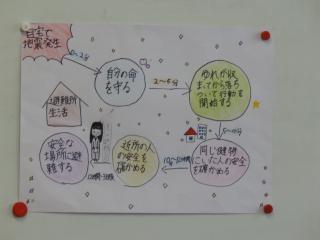 自宅で
地震発生
0~2分
自分の命
を守る
2~5分
ゆれが収
まってから落ち
ついて行動を
開始する
5~10分
同じ建物
にいた人の安全
を確かめる
近所の人
の安全を
確かめる
安全な
場所に避
難する
避難所
生活